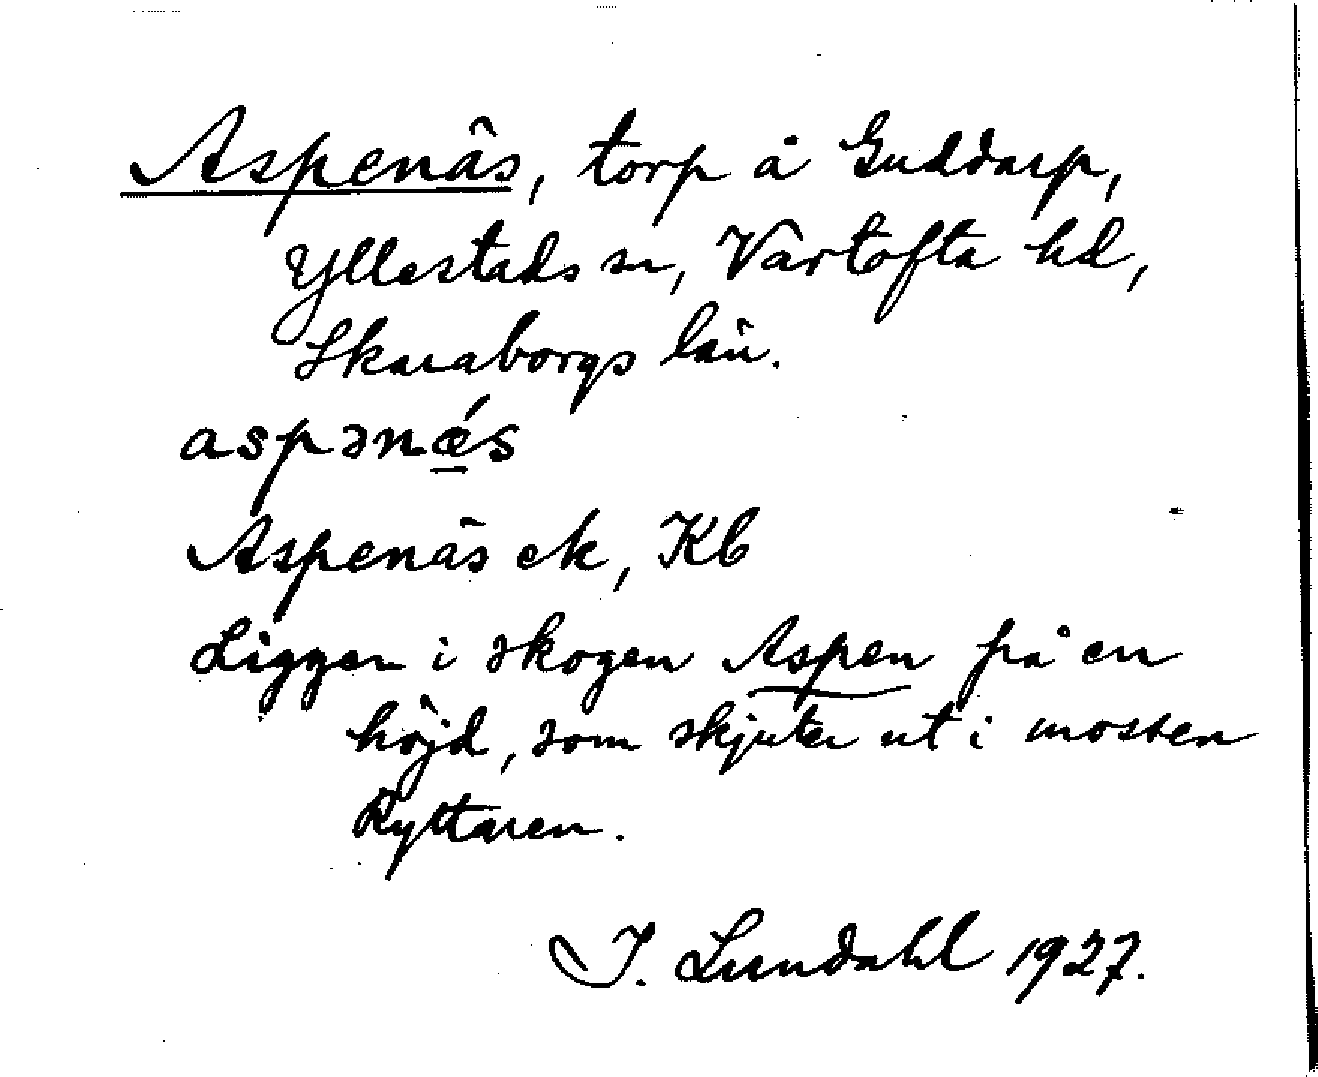 Aspenäs, torp å Guddarp,
Yllestads sn, Vartofta hd,
Skaraborgs län.
aspənǽs
Aspenäs ek, Kb
Ligger i skogen Aspen på en
höjd, som skjuter ut i mossen
Ryttaren.
I. Lundahl 1927.